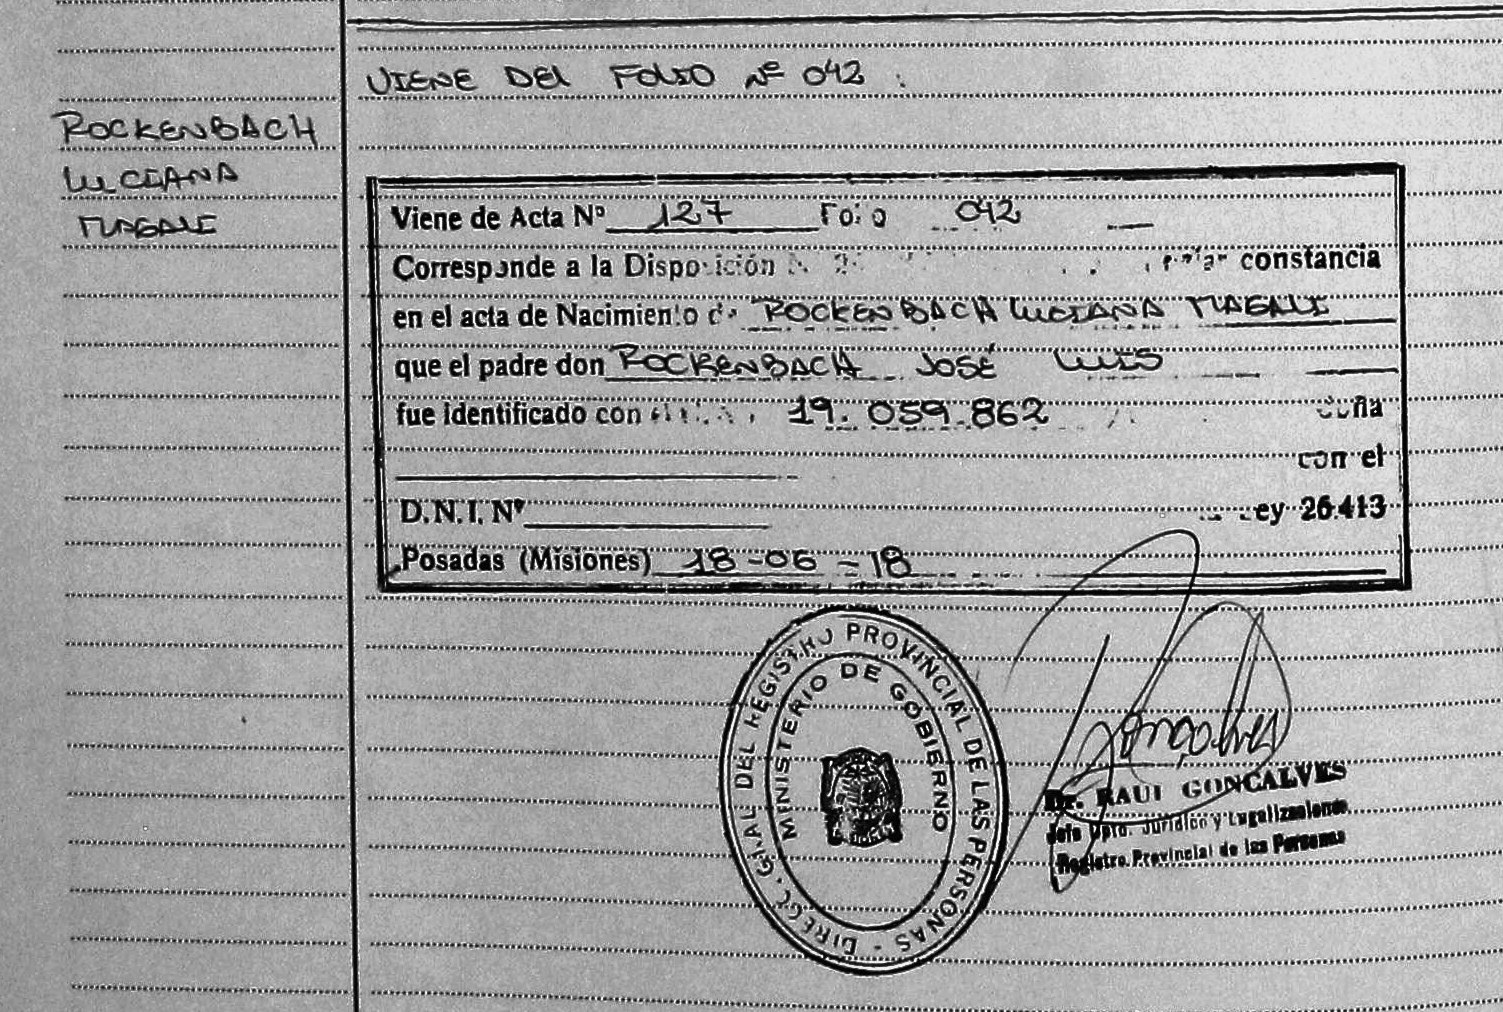 VIENE DEL FOLIO Nº 042.
ROCKENBACH
LUCIANA
MAGALI
Viene de Acta Nº 127 Folio 042
Corresponde a la Disposición constancia
en el acta de Nacimiento de ROCKENBACH LUCIANA MAGALI
que el padre don ROCKENBACH JOSÉ LUIS
fue identificado con 19.059.862 doña
con el
D.N.I. Nº Ley 26.413
Posadas (Misiones) 18-06-18
DIRECC. GRAL DEL REGISTRO PROVINCIAL DE LAS PERSONAS -
MINISTERIO DE GOBIERNO
Dr. RAUL GONCALVES
Jefe Dpto. Jurídico y Legalizaciones
Registro Provincial de las Personas